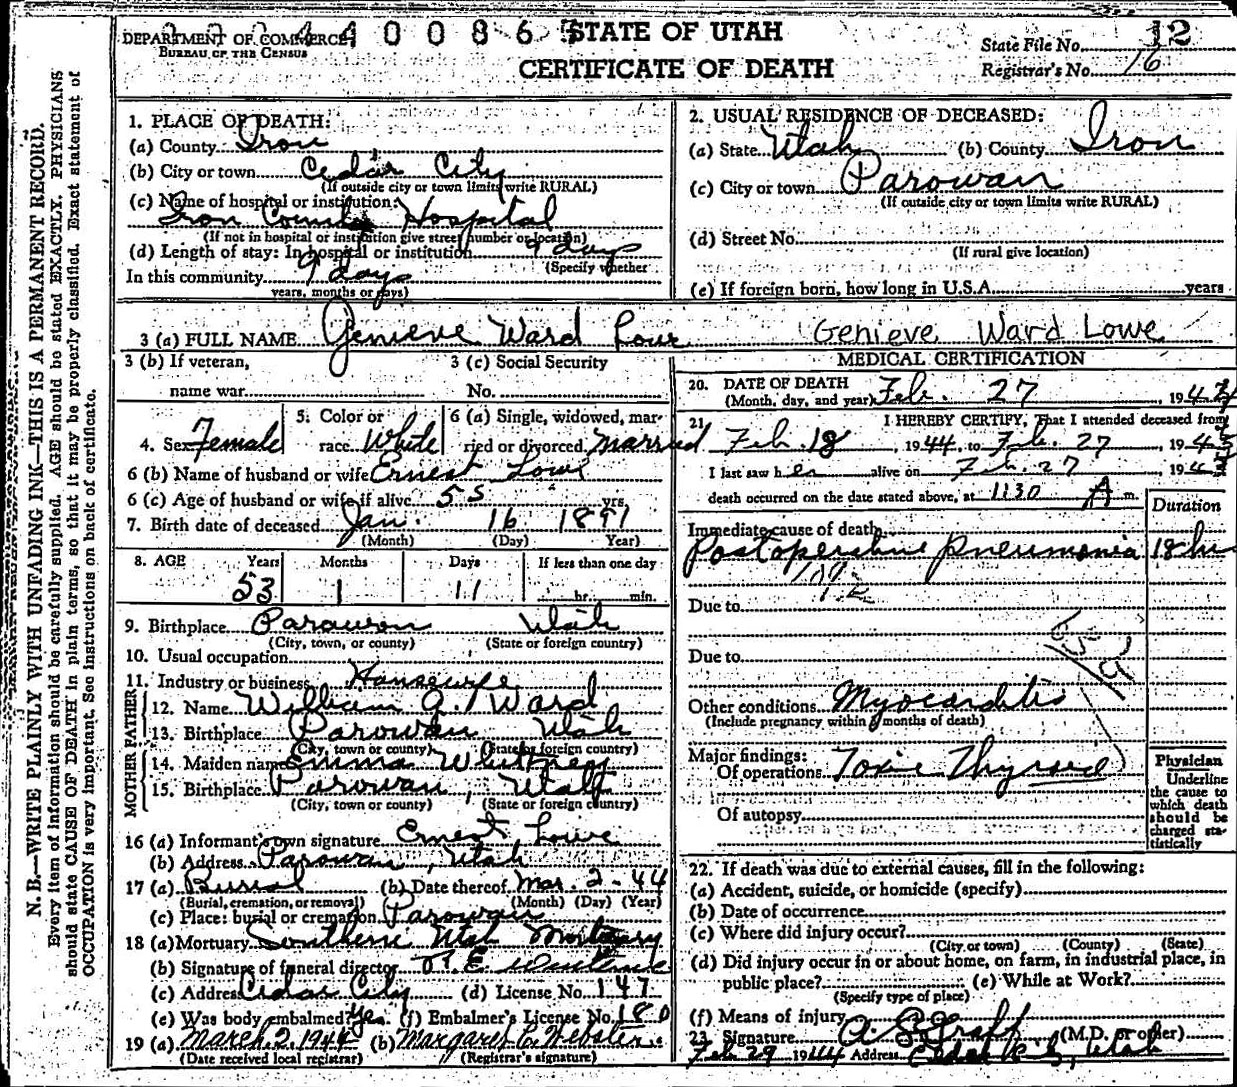 DEPARTMENT OF COMMERCE
BUREAU OF THE CENSUS
STATE OF UTAH
CERTIFICATE OF DEATH
State File No. 12
Registrar's No. 16
N. B.—WRITE PLAINLY WITH UNFADING INK—THIS IS A PERMANENT RECORD.
Every item of information should be carefully supplied. AGE should be stated EXACTLY. PHYSICIANS
should state CAUSE OF DEATH in plain terms, so that it may be properly classified. Exact statement of
OCCUPATION is very important. See instructions on back of certificate.
1. PLACE OF DEATH:
(a) County Iron
(b) City or town Cedar City
(If outside city or town limits write RURAL)
(c) Name of hospital or institution:
Iron County Hospital
(If not in hospital or institution give street number or location)
(d) Length of stay: In hospital or institution 9 days
(Specify whether
In this community 9 days
years, months or days)
2. USUAL RESIDENCE OF DECEASED:
(a) State Utah (b) County Iron
(c) City or town Parowan
(If outside city or town limits write RURAL)
(d) Street No.
(If rural give location)
(e) If foreign born, how long in U.S.A. years
3 (a) FULL NAME Genieve Ward Lowe Genieve Ward Lowe
3 (b) If veteran,
name war
3 (c) Social Security
No.
4. Sex Female
5. Color or
race White
6 (a) Single, widowed, mar-
ried or divorced Married
6 (b) Name of husband or wife Ernest Lowe
6 (c) Age of husband or wife if alive 55 yrs.
7. Birth date of deceased Jan. 16 1891
(Month) (Day) Year)
8. AGE Years Months Days If less than one day
53 1 11 hr. min.
9. Birthplace Parowan Utah
(City, town, or county) (State or foreign country)
10. Usual occupation
11. Industry or business Housewife
FATHER
12. Name William G. Ward
13. Birthplace Parowan Utah
(City, town or county) (State or foreign country)
MOTHER
14. Maiden name Emma Whitney
15. Birthplace Parowan, Utah
(City, town or county) (State or foreign country)
16 (a) Informant's own signature Ernest Lowe
(b) Address Parowan, Utah
17 (a) Burial (b) Date thereof Mar. 2 - 44
(Burial, cremation, or removal) (Month) (Day) (Year)
(c) Place: burial or cremation Parowan
18 (a) Mortuary Southern Utah Mortuary
(b) Signature of funeral director
(c) Address Cedar City (d) License No. 147
(e) Was body embalmed? Yes. (f) Embalmer's License No. 180
19 (a) March 2, 1944 (b) Margaret C. Webster
(Date received local registrar) (Registrar's signature)
MEDICAL CERTIFICATION
20. DATE OF DEATH
(Month, day, and year) Feb. 27, 1944
21. I HEREBY CERTIFY, That I attended deceased from
Feb 18, 1944 to Feb. 27, 194
I last saw her alive on Feb. 27, 194
death occurred on the date stated above, at 1130 A m.
Duration
Immediate cause of death
Postoperative pneumonia 18 hr
Due to
Due to
Other conditions Myocarditis
(Include pregnancy within 3 months of death)
Major findings:
Of operations Toxic Thyroid
Of autopsy
Physician
Underline
the cause to
which death
should be
charged sta-
tistically
22. If death was due to external causes, fill in the following:
(a) Accident, suicide, or homicide (specify)
(b) Date of occurrence
(c) Where did injury occur?
(City or town) (County) (State)
(d) Did injury occur in or about home, on farm, in industrial place, in
public place? (e) While at Work?
(Specify type of place)
(f) Means of injury
23. Signature A. L. Graff (M.D. or other)
Feb 29 1944 Address Cedar City, Utah